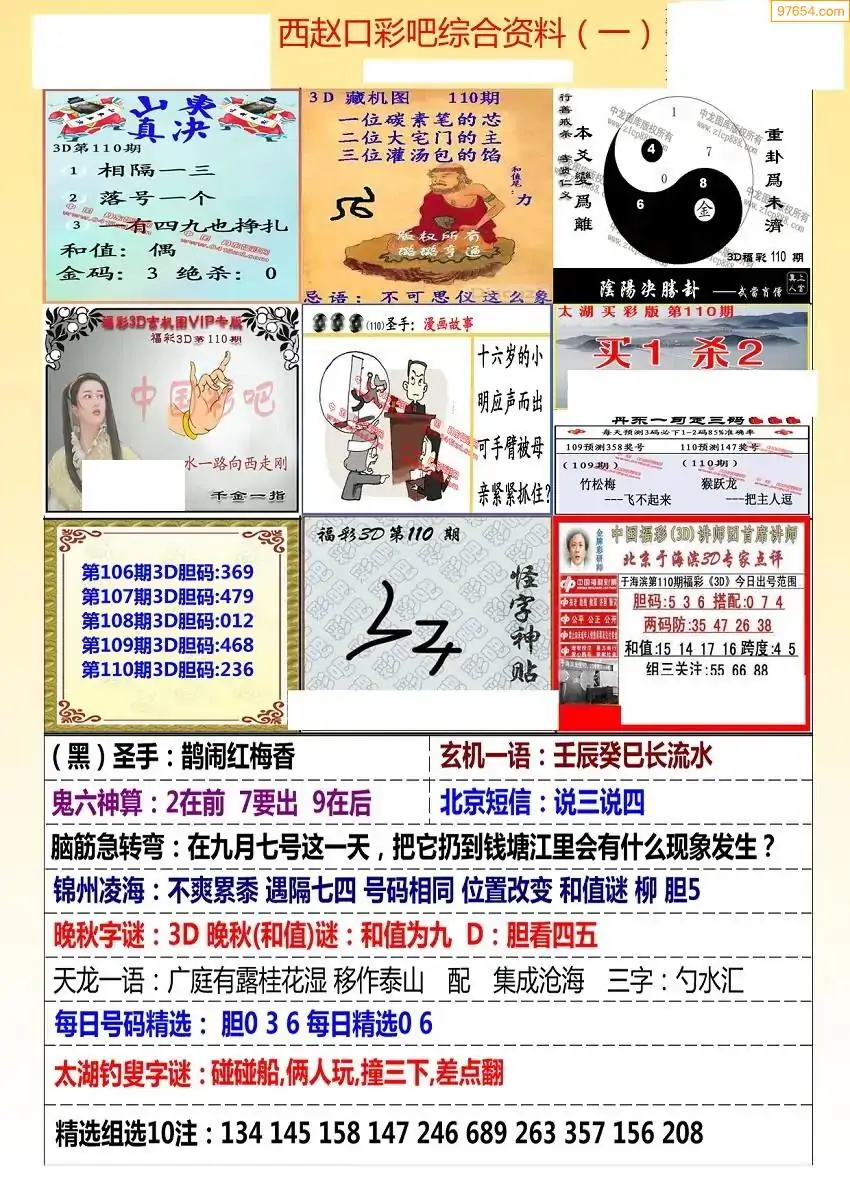 97654.com
西赵口彩吧综合资料（一）
3D第110期
1 相隔一三
2 落号一个
3 一有四九也挣扎
和值： 偶
金码： 3 绝杀：0
3D 藏机图 110期
一位碳素笔的芯
二位大宅门的主
三位灌汤包的馅
和值尾：力
版权所有
忌语：不可思仪这么象
行善戒杀
本爻變爲離
重卦爲未濟
1
4
7
0
8
6
金
3D福彩110期
陰陽決勝卦
福彩3D玄机图VIP专版
福彩3D第110期
中国彩吧
水一路向西走刚
千金一指
(110)圣手：漫画故事
十六岁的小
明应声而出
可手臂被母
亲紧紧抓住?
太湖买彩版 第110期
买1 杀2
每天预测3码必下1-2码85%准确率
109预测358奖号 110预测147奖号
(109期) (110期)
竹松梅 猴跃龙
---飞不起来 ---把主人逗
第106期3D胆码:369
第107期3D胆码:479
第108期3D胆码:012
第109期3D胆码:468
第110期3D胆码:236
福彩3D第110 期
怪字神贴
金牌彩研师
中国福彩(3D)讲师团首席讲师
北京于海滨3D专家点评
于海滨第110期福彩《3D》今日出号范围
胆码:5 3 6 搭配:0 7 4
两码防:35 47 26 38
和值:15 14 17 16 跨度:4 5
组三关注:55 66 88
中国福利彩票
公平 公正 公开
（黑）圣手：鹊闹红梅香
玄机一语：壬辰癸巳长流水
鬼六神算：2在前 7要出 9在后
北京短信：说三说四
脑筋急转弯：在九月七号这一天，把它扔到钱塘江里会有什么现象发生？
锦州凌海：不爽累黍 遇隔七四 号码相同 位置改变 和值谜 柳 胆5
晚秋字谜：3D 晚秋(和值)谜：和值为九 D：胆看四五
天龙一语：广庭有露桂花湿 移作泰山 配 集成沧海 三字：勺水汇
每日号码精选： 胆0 3 6 每日精选0 6
太湖钓叟字谜：碰碰船,俩人玩,撞三下,差点翻
精选组选10注：134 145 158 147 246 689 263 357 156 208